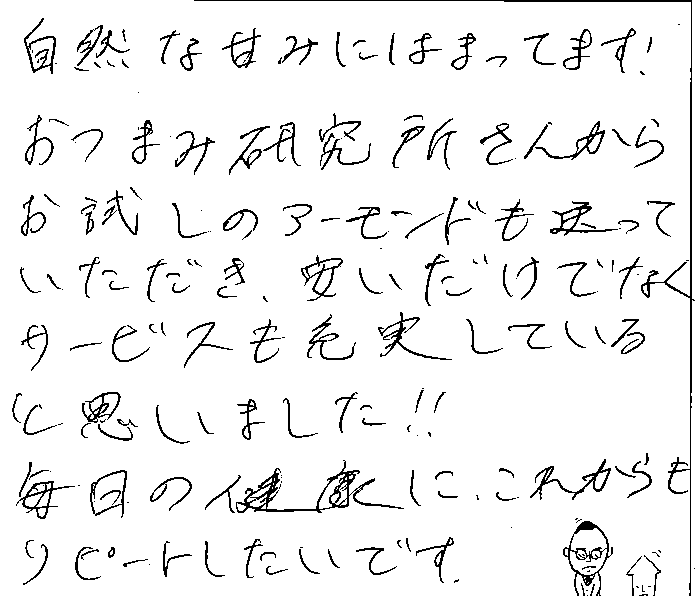 自然な甘みにはまってます!
おつまみ研究所さんから
お試しのアーモンドも送って
いただき、安いだけでなく
サービスも充実している
と思いました!!
毎日の健康に、これからも
リピートしたいです。